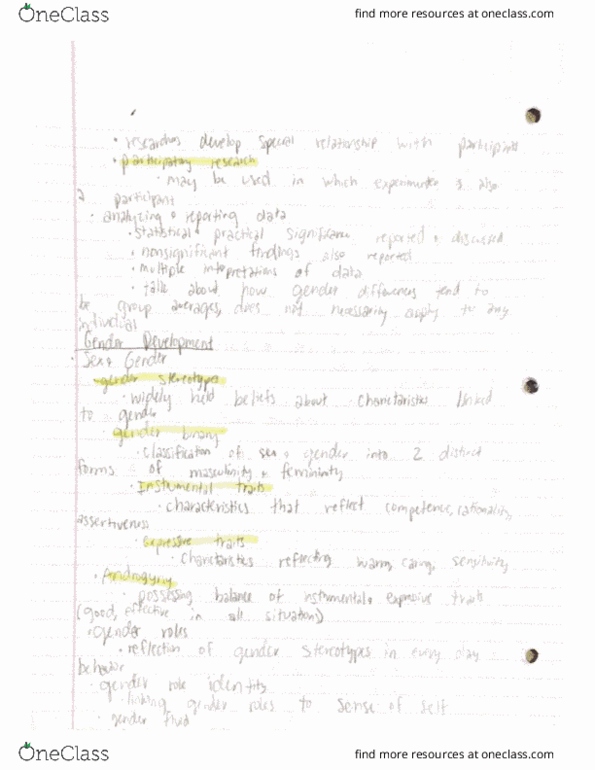 OneClass
find more resources at oneclass.com
• researchers develop special relationship with participants
• participatory research
• may be used in which experimenter is also
a participant
• analyzing + reporting data
• statistical + practical significance reported + discussed
• nonsignificant findings also reported
• multiple interpretations of data
• talk about how gender differences tend to
be group averages, does not necessarily apply to any
individual
Gender Development
• Sex + Gender
• gender stereotypes
• widely held beliefs about characteristics linked
to gender
gender binary
• classification of sex + gender into 2 distinct
forms of masculinity + femininity
• Instrumental traits
• characteristics that reflect competence, rationality,
assertiveness
• expressive traits
characteristics reflecting warm, caring, sensitivity
• Androgyny
• possessing balance of instrumental + expressive traits
(good, effective in all situations)
• gender roles
• reflection of gender stereotypes in every day
behavior
• gender role identity
• linking gender roles to sense of self
• gender fluid
OneClass
find more resources at oneclass.com